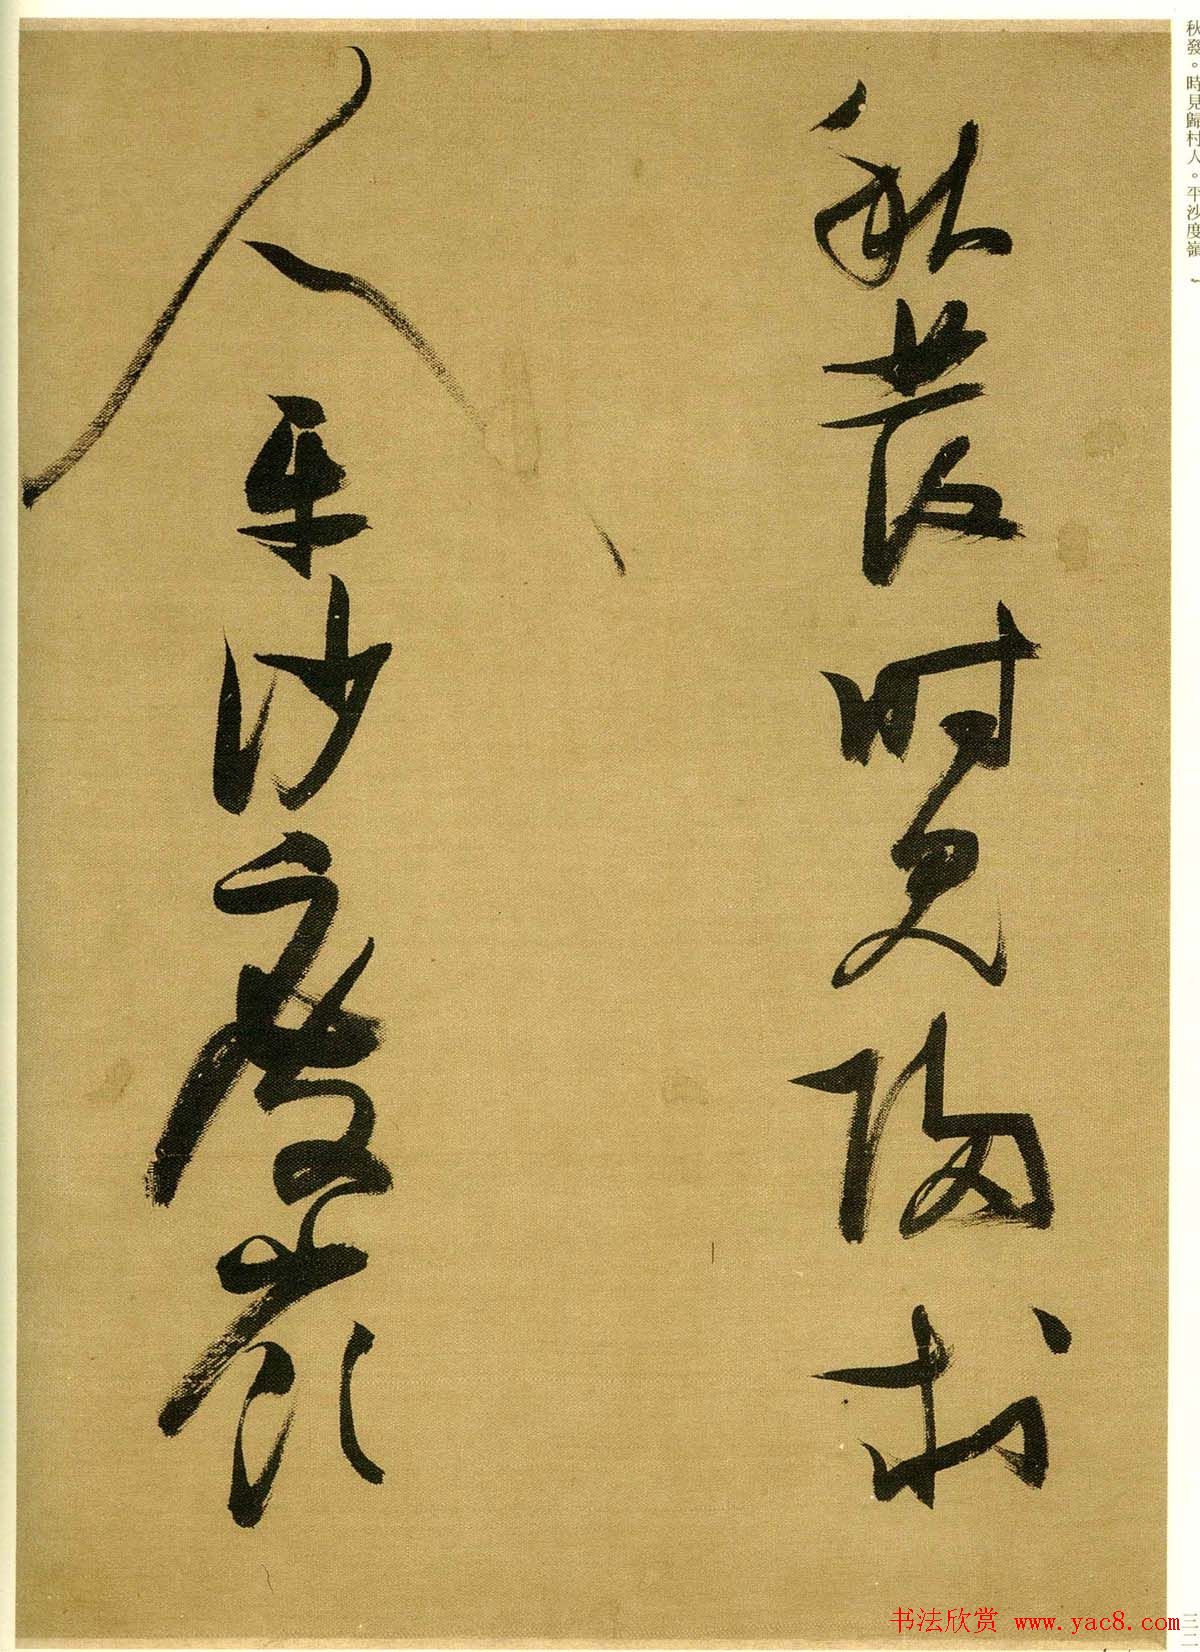 秋發。時見歸村人。平沙度嶺
秋發時見歸村
人平沙度嶺
三二
书法欣赏 www.yac8.com